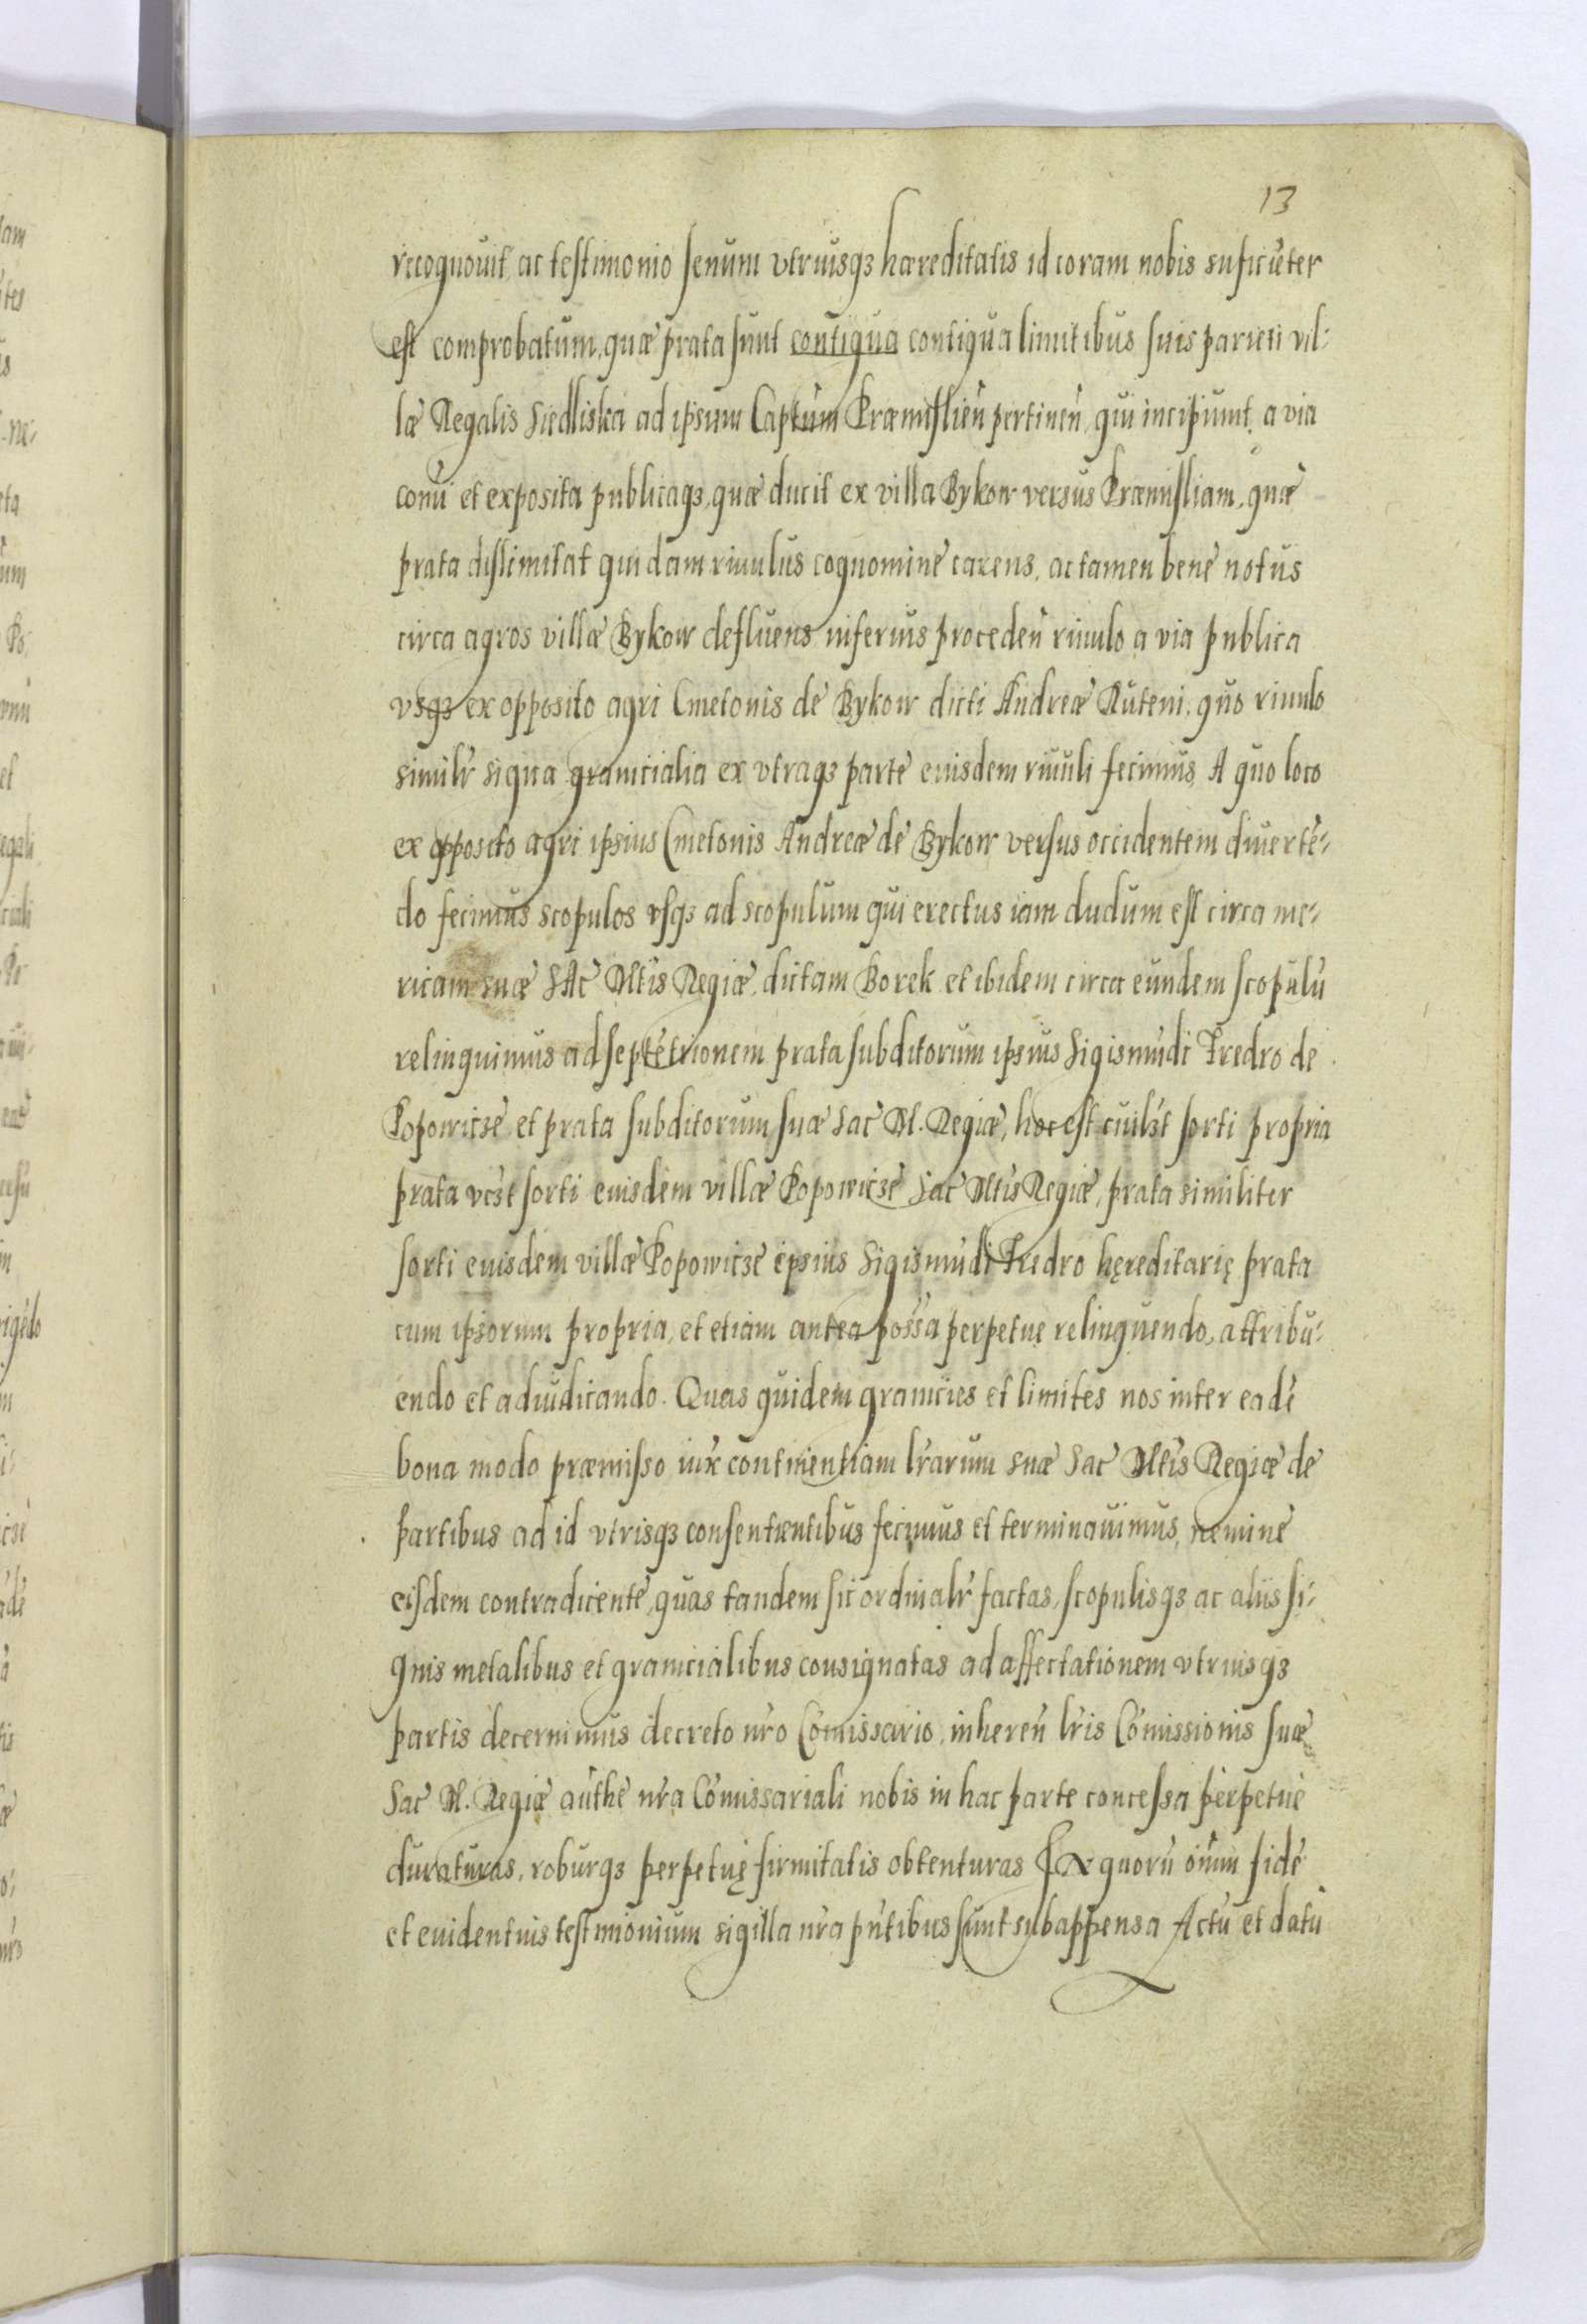 13
recognouit, ac testimonio senum vtriusqз hæreditatis id coram nobis suficiēter
est comprobatum, quæ prata sunt contiqua contiqua limitibus suis parieti vil:
læ Regalis Siedliska ad ipsum Captum Præmislień pertineń, qui incipiunt a via
coṁi et exposita publicaqз, quæ ducit ex villa Bykow versus Præmisliam, quæ
prata dislimitat quidam riuulus cognomine carens, ac tamen bene notus
circa agros villæ Bykow defluens inferius procedeń riuulo a via publica
vsqз ex opposito agri Cmetonis de Bykow dicti Andreæ Ruteni, quo riuulo
similr signa granicialia ex vtraqз parte euisdem riuuli fecimus, A quo loco
ex opposito agri ipsius Cmetonis Andreæ de Bykow versus occidentem diuertē-
do fecimus scopulos vsqз ad scopulum qui erectus iam dudum est circa me-
ricam suæ SAc Mtis Regiæ, dictam Borek et ibidem circa eundem scopulū
relinquimus ad septētrionem prata subditorum ipsius Sigismūdi Fredro de
Popowicze et prata subditorum suæ Sac M. Regiæ, hoc est cuilзt sorti propria
prata vczt sorti euisdem villæ Popowicze Sac Mtis Regiæ, prata similiter
sorti euisdem villæ Popowicze ipsius Sigismūdi Fredro hęreditarię prata
cum ipsorum propria, et etiam antea possa perpetue relinquendo, attribu-
endo et adiudicando. Quas quidem granicies et limites nos inter eadē
bona modo præmisso iux continentiam lrarum suæ Sac Mtis Regiæ de
partibus ad id vtrisqз consentientibus fecimus et terminauimus, nemine
eisdem contradicente, quas tandem sic ordinalr factas, scopulisqз ac aliis si-
gnis metalibus et granicialibus consignatas ad affectationem vtriusqз
partis decernimus decreto nro Cōmissario, inhereń lris Cōmissionis suæ
Sac M. Regiæ authe nra Cōmissariali nobis in hac parte concessa perpetue
duraturas, roburqз perpetuę firmitatis obtenturas In quorū oīum fidē
et euidentius testimonium sigilla nra pntibus sunt subappensa Actū et datū